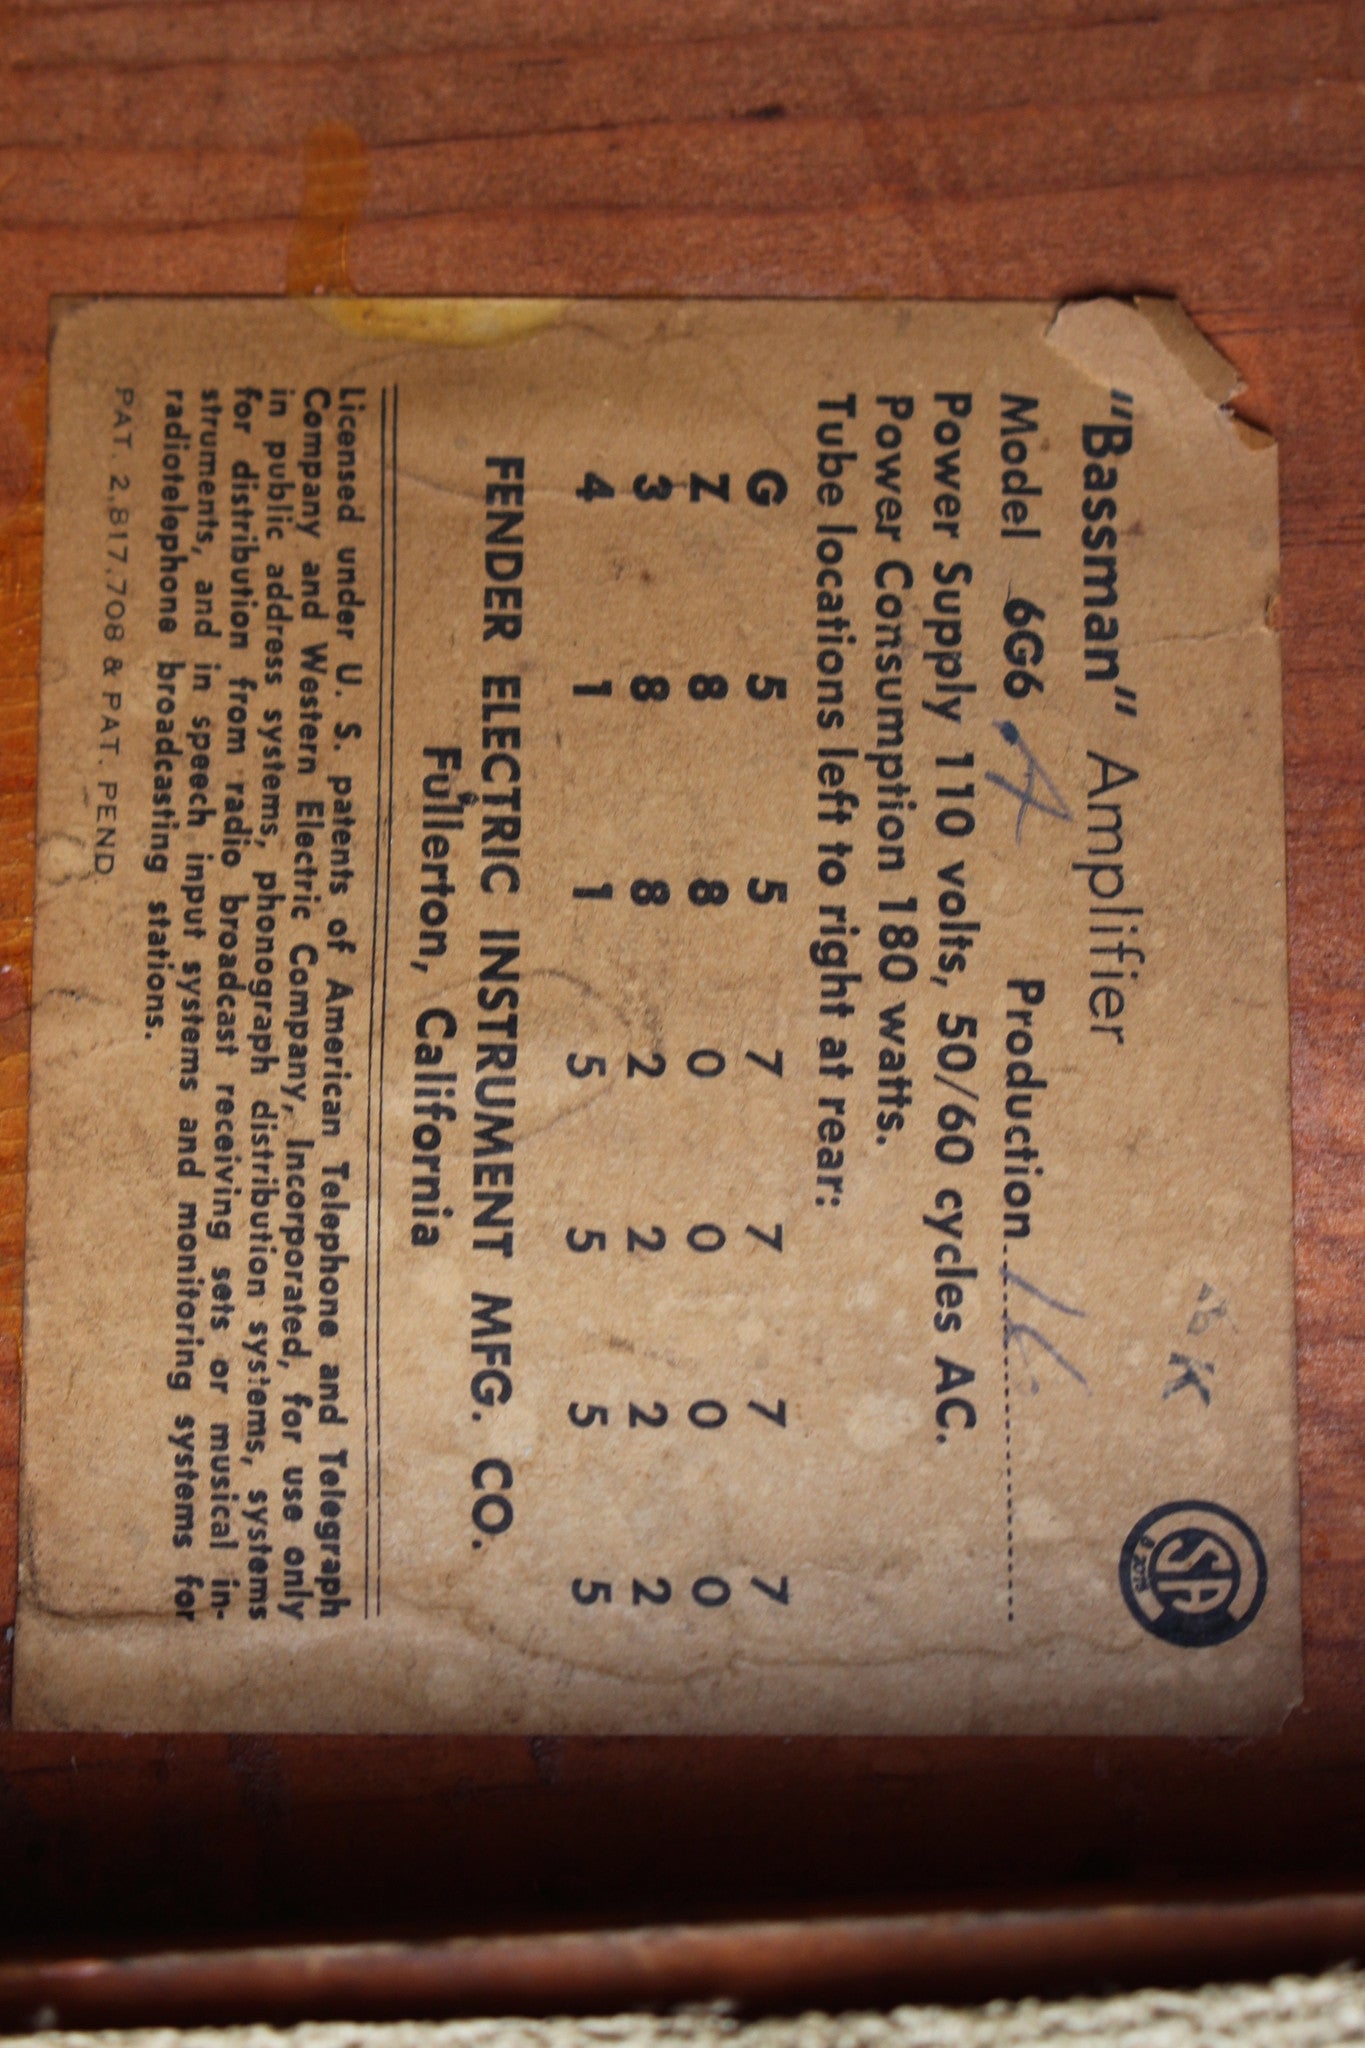 "Bassman" Amplifier
Model 6G6 A Production
Power Supply 110 volts, 50/60 cycles AC.
Power Consumption 180 watts.
Tube locations left to right at rear:
G 5 5 7 7 7 7
Z 8 8 0 0 0 0
3 8 8 2 2 2 2
4 1 1 5 5 5 5
FENDER ELECTRIC INSTRUMENT MFG. CO.
Fullerton, California
Licensed under U. S. patents of American Telephone and Telegraph
Company and Western Electric Company, Incorporated, for use only
in public address systems, phonograph distribution systems, systems
for distribution from radio broadcast receiving sets or musical in-
struments, and in speech input systems and monitoring systems for
radiotelephone broadcasting stations.
PAT. 2,817,708 & PAT. PEND.